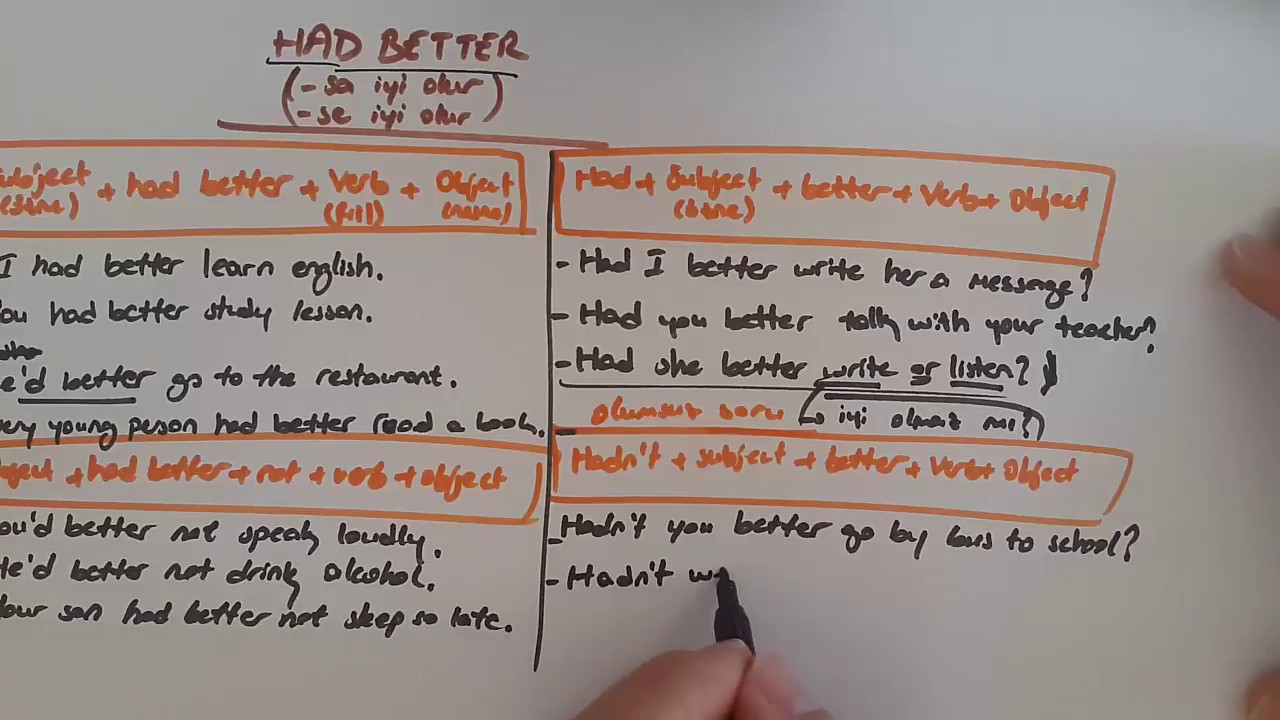 HAD BETTER
(- sa iyi olur)
(- se iyi olur)
ubject + had better + Verb + Object
(özne) (fiil) (nesne)
I had better learn english.
ou had better study lesson.
e'd better go to the restaurant.
very young person had better read a book.
bject + had better + not + verb + object
ou'd better not speak loudly.
He'd better not drink alcohol.
Your son had better not sleep so late.
Had + Subject + better + Verb + Object
(özne)
- Had I better write her a message?
- Had you better talk with your teacher?
- Had she better write or listen?
olumsuz soru iyi olmaz mı?
Hadn't + subject + better + Verb + Object
- Hadn't you better go by bus to school?
- Hadn't we